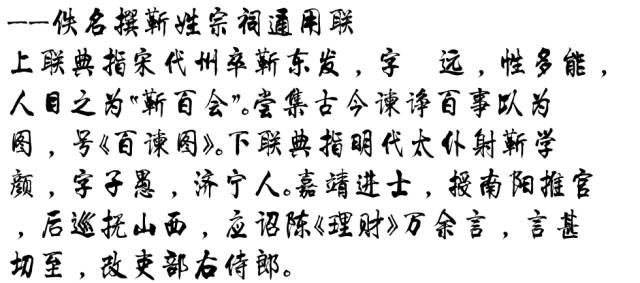 ——佚名撰靳姓宗祠通用联
上联典指宋代州卒靳东发，字 远，性多能，
人目之为“靳百会”。尝集古今谏诤百事以为
图，号《百谏图》。下联典指明代太仆射靳学
颜，字子愚，济宁人。嘉靖进士，授南阳推官
，后巡抚山西，应诏陈《理财》万余言，言甚
切至，改吏部右侍郎。